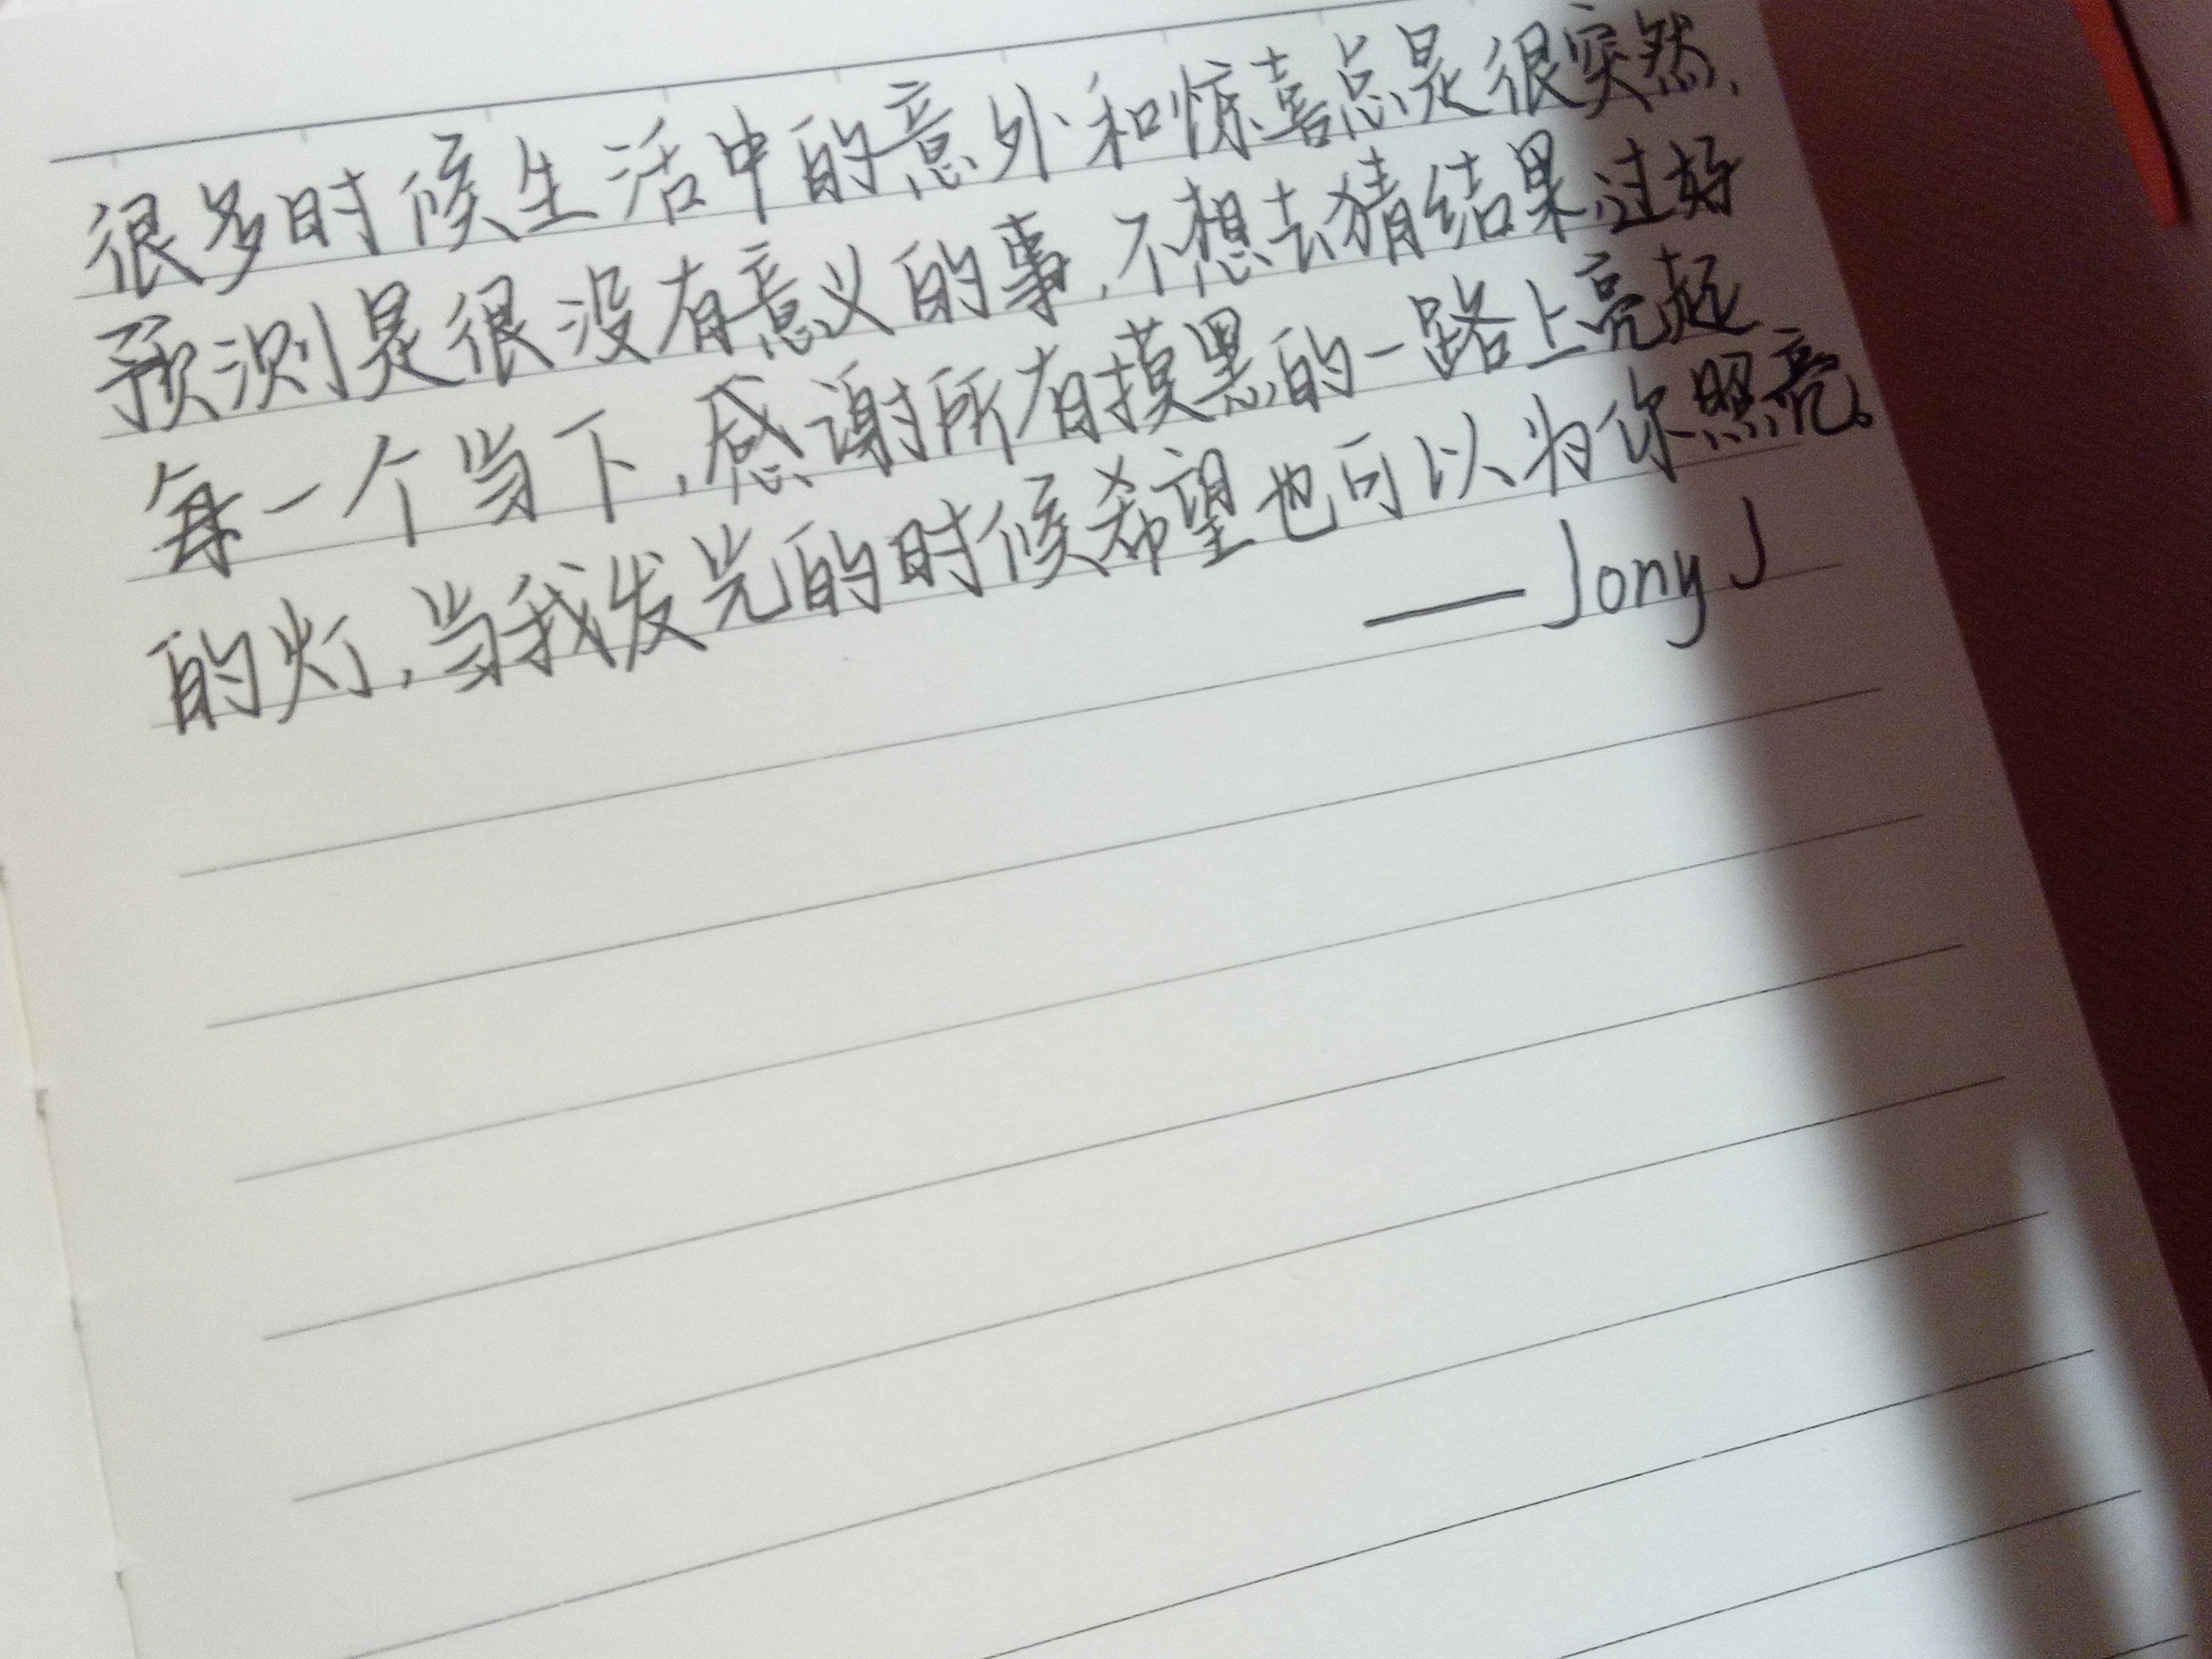 很多时候生活中的意外和惊喜总是很突然,
预测是很没有意义的事,不想去猜结果,过好
每一个当下,感谢所有摸黑的一路上亮起
的灯,当我发光的时候希望也可以为你照亮。
——Jony J